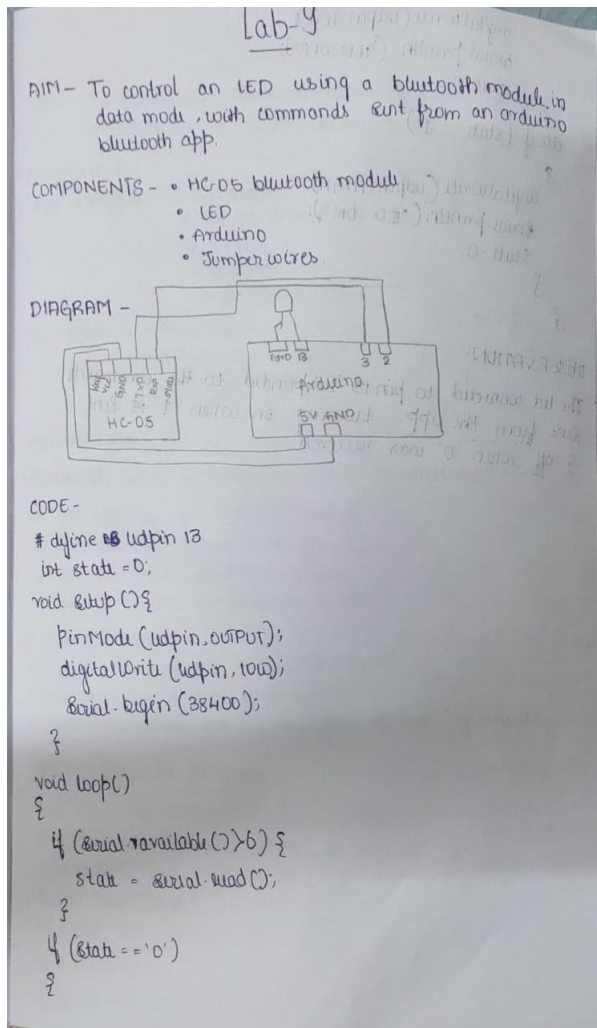 Lab-9
AIM - To control an LED using a bluetooth module in
data mode, with commands sent from an arduino
bluetooth app.
COMPONENTS - • HC-05 bluetooth module
• LED
• Arduino
• Jumper wires.
DIAGRAM -
GND 13 3 2
Vcc GND TXD RXD State
Arduino
HC-05
5V GND
CODE -
# define ledpin 13
int state = 0;
void setup () {
pinMode (ledpin, OUTPUT);
digitalWrite (ledpin, LOW);
Serial.begin (38400);
}
void loop()
{
if (Serial.available () >6) {
state = serial.read ();
}
if (state == '0')
{